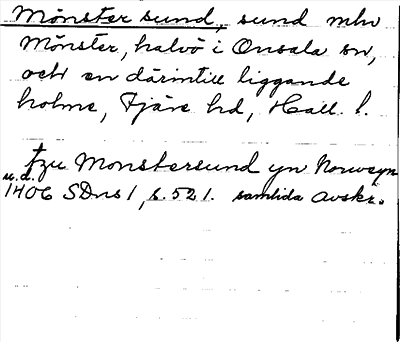 Mönster sund, sund mln
Mönster, halvö i Onsala sn,
och en därintill liggande
holme, Fjäre hd, Hall. l.
tzu Monstersund yn Norwegn
u.d.
1406 SDns 1, s. 521. samtida avskr.